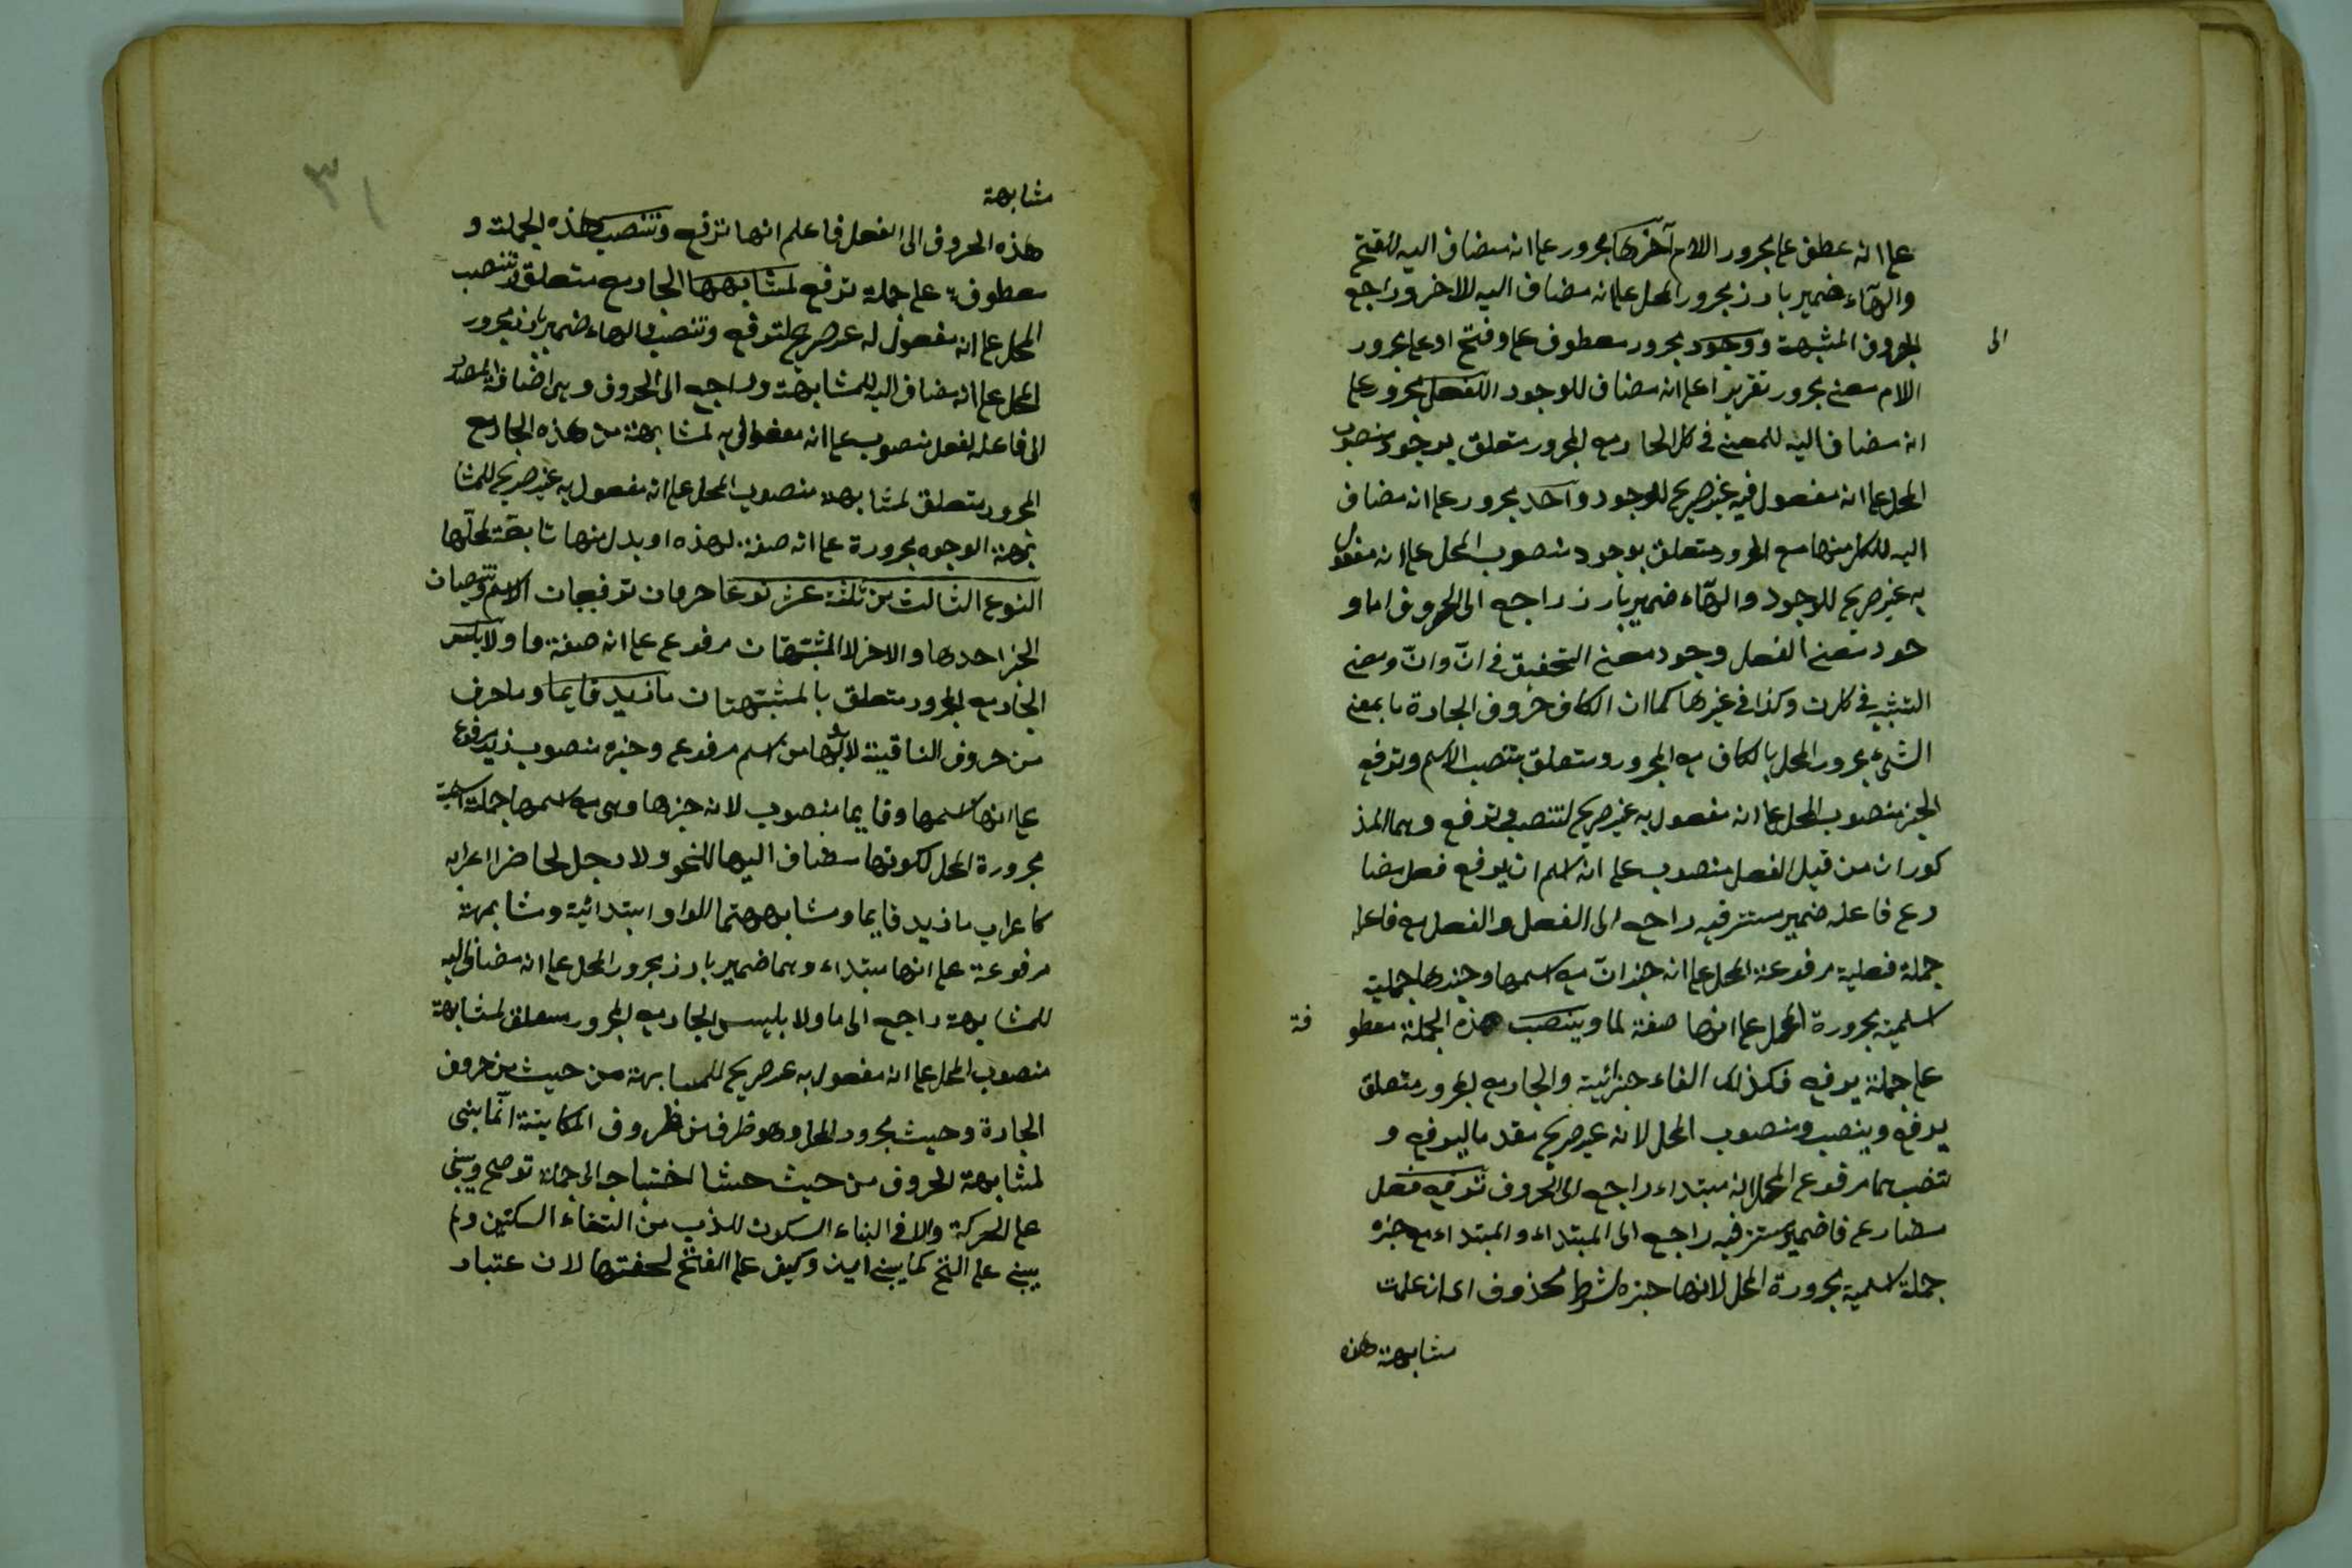 على انه عطف على مجرور اللام آخرها مجرور على انه مضاف اليه لفتح
والهاء ضمير بارز مجرور المحل على انه مضاف اليه للاخر وراجع
الى
لحروف المشبهة ووجود مجرور معطوف على وفتح او على مجرور
اللام معنى مجرور تقريرا على انه مضاف للوجود الفعل مجرور على
انه مضاف اليه للمعنى في كل الجار مع المجرور متعلق بوجود منصوب
المحل على انه مفعول فيه غير صريح للوجود واحد مجرور على انه مضاف
اليه للكل منها مع المجرور متعلق بوجود منصوب المحل على انه مفعول
به غير صريح للوجود والهاء ضمير بارز راجع الى الحروف اما و
جود معنى الفعل وجود معنى التحقيق في انّ وانّ ومعنى
التشبيه في كان وكذا في غيرها كما ان الكاف حروف الجارة ما بمعنى
الشئ مجرور المحل بالكاف مع المجرور ومتعلق بتنصب الاسم وترفع
الخبر منصوب المحل على انه مفعول به غير صريح لتنصب وترفع وهما المذ
كوران من قبل الفعل منصوب على انه اسم ان يرفع فعل مضا
رع فاعله ضمير مستتر فيه راجع الى الفعل والفعل مع فاعله
جملة فعلية مرفوعة المحل على انه خبر انّ مع اسمها وخبرها جملية
اسمية مجرورة المحل على انها صفة لما وينصب هذه الجملة معطو
فة
على جملة يرفع فكذلك الفاء جزائية والجار مع المجرور متعلق
يرفع وينصب ومنصوب المحل لانه غير صريح مقدما ليرفع و
تنصب هما مرفوع المحل لانه مبتداء راجع الى الحروف ترفع فعل
مضارع فا ضمير مستتر فيه راجع الى المبتداء والمبتداء مع خبره
جملة اسمية مجرورة المحل لانها جزء لشرط محذوف اى ان علمت
مشابهة هذه
٣١
مشابهة
هذه الحروف الى الفعل فاعلم انها ترفع وتنصب هذه الجملة و
معطوفة على جملة ترفع لمشابهها الجار مع متعلق لتنصب
المحل على انه مفعول له غير صريح لترفع وتنصب والهاء ضمير بارز مجرور
المحل على انه مضاف اليه للمشابهة وراجع الى الحروف وهى اضافة المصدر
الى فاعله لفعل منصوب على انه مفعول به لمشابهة من هذه الجار مع
المجرور متعلق لمشابهة منصوب المحل على انه مفعول به غير صريح للمشا
بهة الوجوه مجرورة على انه صفة لهذه او بدل منها تابعة لمحلها
النوع الثالث من ثلثة عشر نوعا حرفان ترفعان الاسم وتنصبان
الخبر احدها والاخر لا المشبهتان مرفوع على انه صفة ما ولا بليس
الجار مع المجرور متعلق بالمشبهتان ما زيد قايما وما حرف
من حروف النافية لابد لها من اسم مرفوع وخبره منصوب زيد مرفوع
على انها اسمها وقايما منصوب لانه خبرها وهى مع اسمها جملة اسمية
مجرورة المحل لكونها مضاف اليها للنحو ولا رجل لحاضرا اعرابه
كاعراب ما زيد قايما ومشابههتما الواو ابتدائية ومشابهة
مرفوعة على انها مبتداء وهما ضمير بارز مجرور المحل على انه مضاف اليه
للمشابهة راجع الى ما ولا بليس الجار مع المجرور متعلق لمشابهة
منصوب المحل على انه مفعول به غير صريح للمشابهة من حيث من حروف
الجارة وحيث مجرور المحل وهو ظرف من ظروف المكانية انما بنى
لمشابهة الحروف من حيث احتياجه الى جملة توضح وبنى
على الحركة والا في البناء السكون للذب من التقاء الساكنين ولم
يبنى على الفتح كما يبنى اين وكيف على الفتح لخفتها لان عتبار